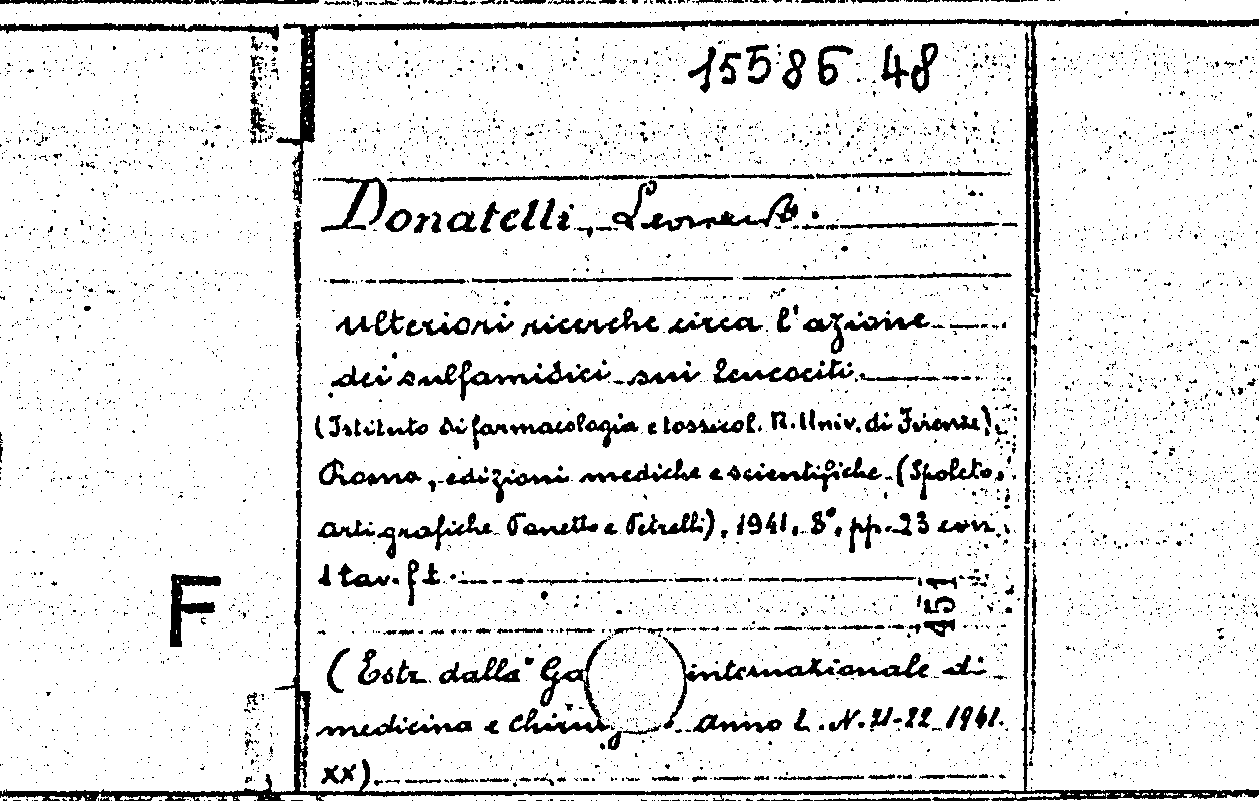 15586 48
Donatelli, Leonardo.
Ulteriori ricerche circa l'azione
dei sulfamidici sui leucociti.
(Istituto di farmacologia e tossicol. R. Univ. di Firenze).
Roma, edizioni mediche e scientifiche (Spoleto,
arti grafiche Panetto e Petrelli), 1941, 8°, pp. 23 con
1 tav. f t.
451
F
(Estr. dalla "Ga internazionale di
medicina e chirurg anno L. N. 21-22 1941.
XX).